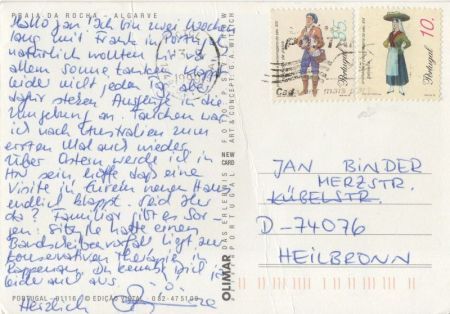 PRAIA DA ROCHA - ALGARVE
Hallo Jan! Ich bin zwei Wochen
lang mit Frank in
natürlich wollten wir vor
allem Sonne tanken. Klappt
leider nicht jeden Tag, aber
dafür stehen Ausflüge in die
Umgebung an. Tauchen war
ich nach Australien zum
ersten Mal auch wieder
Über Ostern werde ich in
HN sein hoffe dass eine
Visite in Eurem neuen Haus
endlich klappt. Seid Ihr
da? Familiär gibt es Sor-
gen: hatte einen
Bandscheibenvorfall liegt zur
konservativen Therapie in
Du kennst Dich ja
leider auch aus.
Herzlich
PORTUGAL - 01116 - 7ª EDIÇÃO VISTA 082-475109
OLIMAR
DAS ERLEBNIS PORTUGAL
NEW CARD
85.
Portugal
10.
Portugal
JAN BINDER
HERZSTR.
KÜBELSTR.
D-74076
HEILBRONN